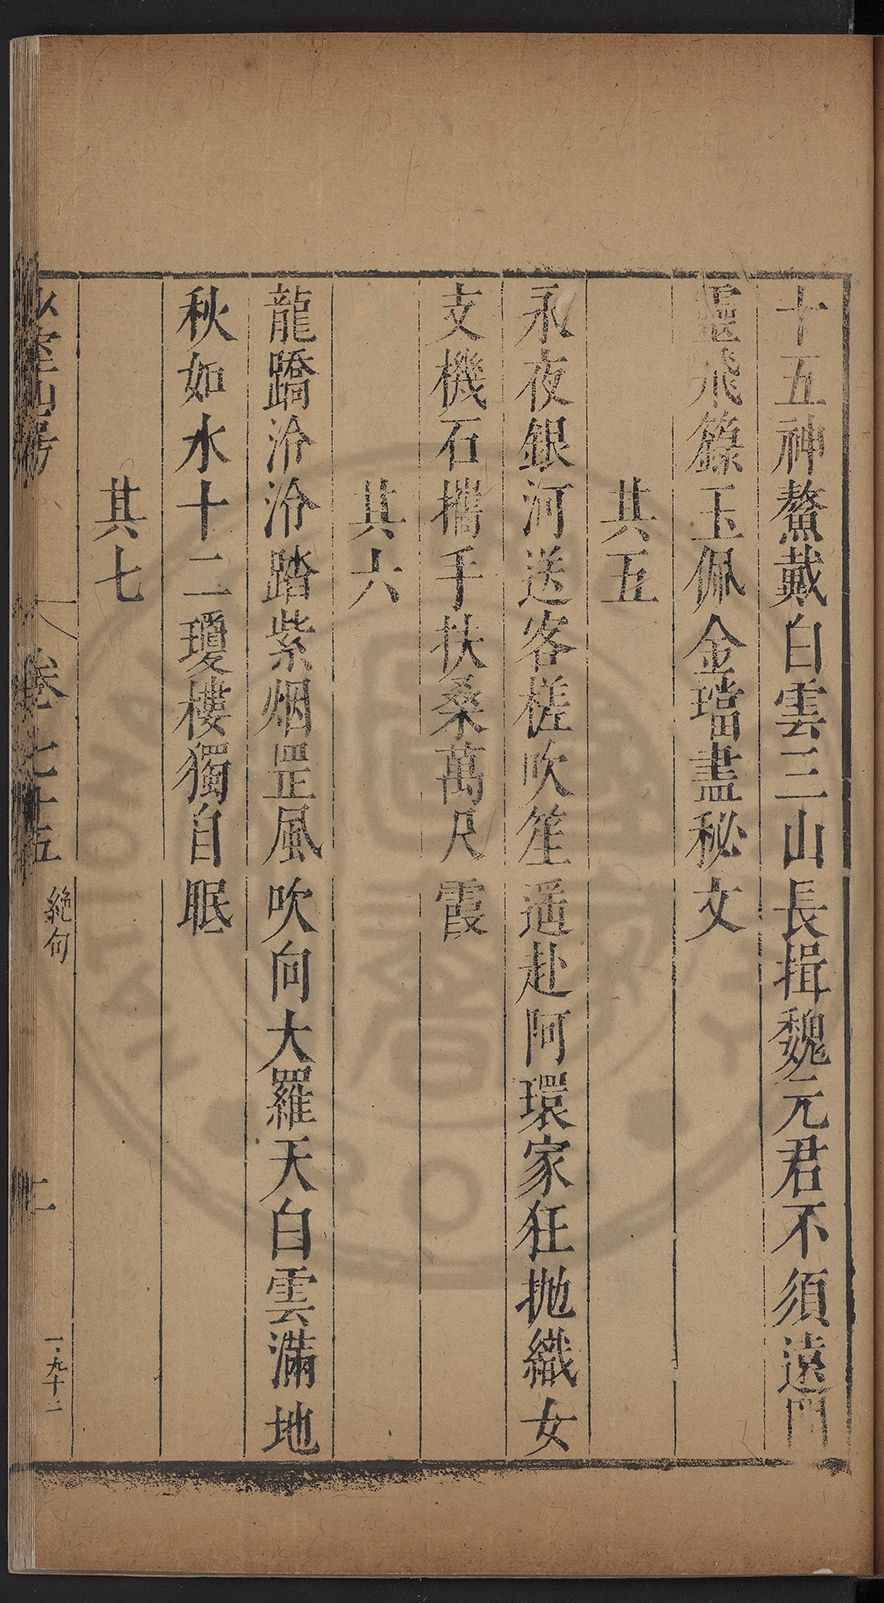 十五神鰲戴白雲三山長揖魏元君不須遠問
靈飛籙玉佩金璫盡秘文
其五
永夜銀河送客槎吹笙遥赴阿環家狂抛織女
支機石攜手扶桑萬尺霞
其六
龍蹻泠泠踏紫烟罡風吹向大羅天白雲滿地
秋如水十二瓊樓獨自眠
其七
少室山房
卷七十五
絶句
二
一·九十二